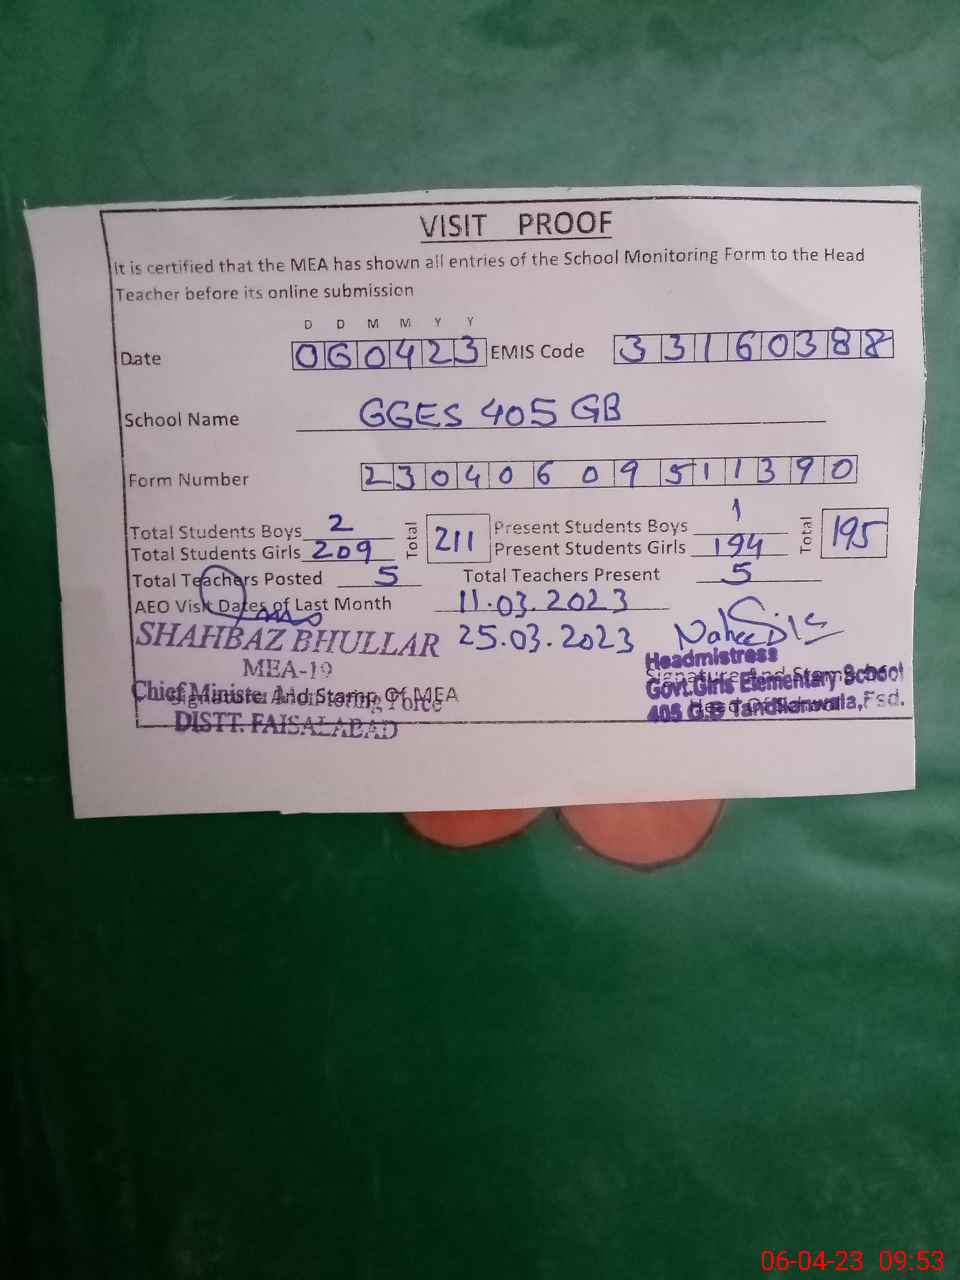 VISIT PROOF
It is certified that the MEA has shown all entries of the School Monitoring Form to the Head
Teacher before its online submission
D D M M Y Y
Date 060423 EMIS Code 33160388
School Name GGES 405 GB
Form Number 230406095113 90
Total Students Boys 2 Total 211 Present Students Boys 1 Total 195
Total Students Girls 209 Present Students Girls 194
Total Teachers Posted 5 Total Teachers Present 5
AEO Visit Dates of Last Month 11.03.2023
25.03.2023
SHAHBAZ BHULLAR
MEA-19
Chief Minister Monitoring Force
DISTT. FAISALABAD
Signature And Stamp Of MEA
Headmistress
Govt.Girls Elementary School
405 G.B Tandlianwala, Fsd.
Signature And Stamp Of
Head Of School
06-04-23 09:53